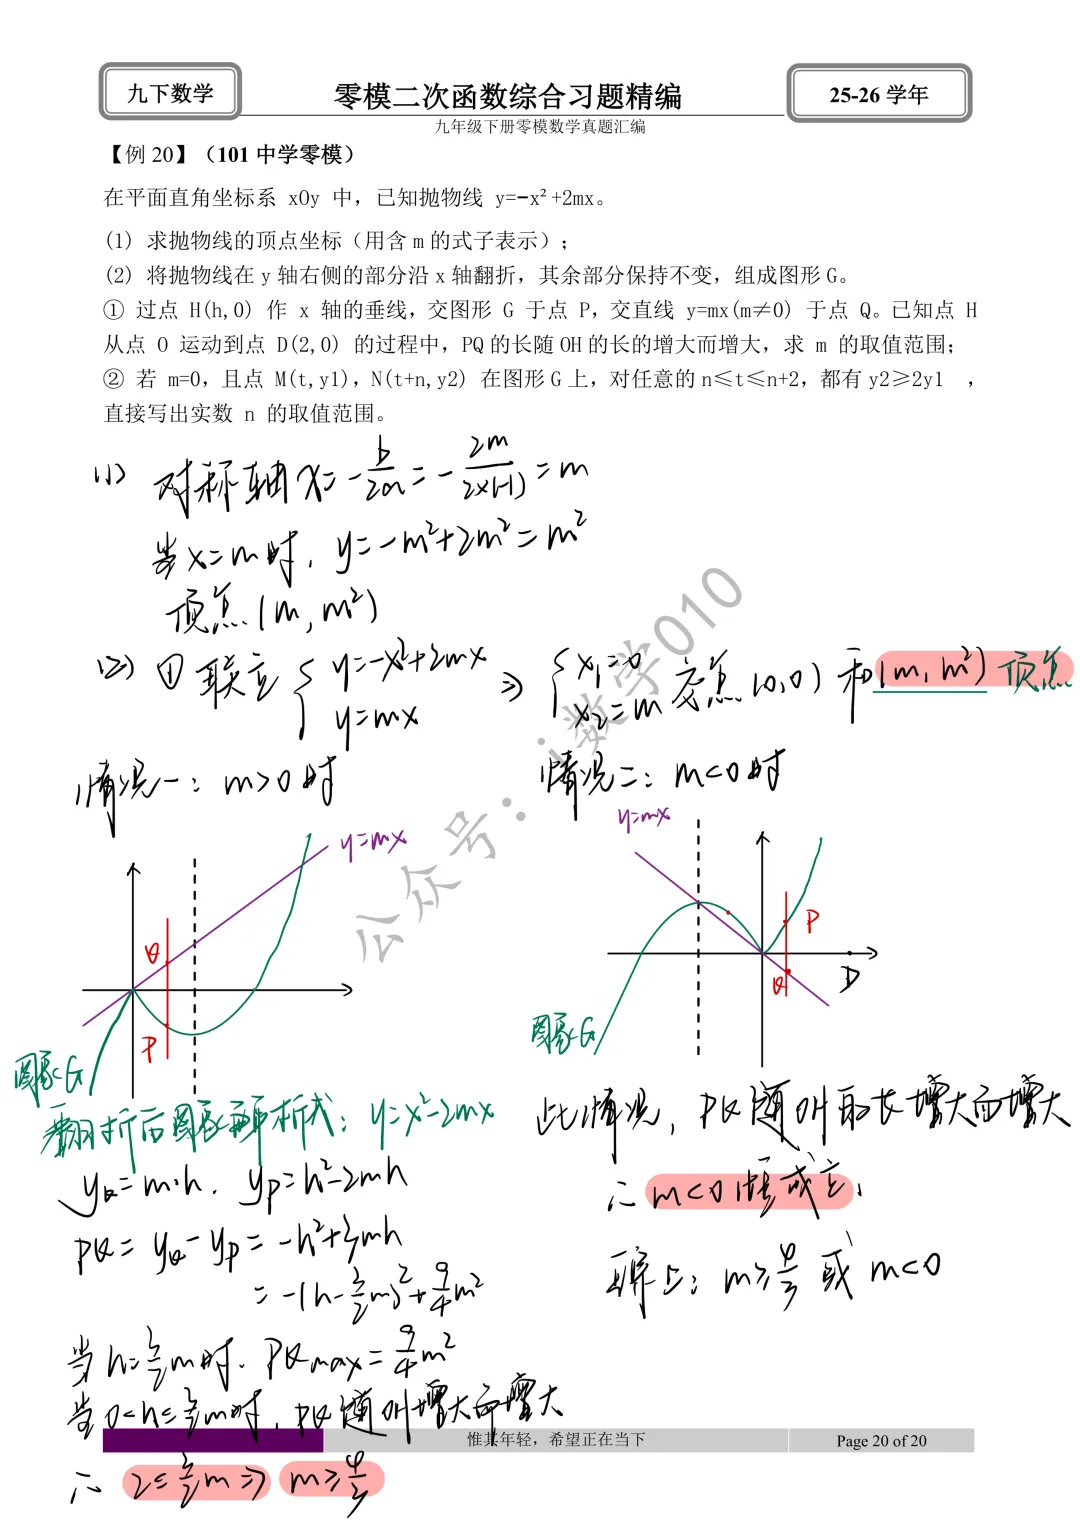 九下数学
零模二次函数综合习题精编
25-26 学年
九年级下册零模数学真题汇编
【例 20】（101 中学零模）
在平面直角坐标系 xOy 中，已知抛物线 y=-x²+2mx。
(1) 求抛物线的顶点坐标（用含 m 的式子表示）；
(2) 将抛物线在 y 轴右侧的部分沿 x 轴翻折，其余部分保持不变，组成图形 G。
① 过点 H(h,0) 作 x 轴的垂线，交图形 G 于点 P，交直线 y=mx(m≠0) 于点 Q。已知点 H
从点 O 运动到点 D(2,0) 的过程中，PQ 的长随 OH 的长的增大而增大，求 m 的取值范围；
② 若 m=0，且点 M(t,y1)，N(t+n,y2) 在图形 G 上，对任意的 n≤t≤n+2，都有 y2≥2y1 ，
直接写出实数 n 的取值范围。
(1) 对称轴 x=-b/2a=-2m/2×(-1)=m
当 x=m 时，y=-m²+2m²=m²
顶点(m,m²)
(2) ① 联立 { y=-x²+2mx
y=mx
⇒ { x₁=0
x₂=m 交点(0,0) 和(m,m²) 顶点
情况一：m>0 时
情况二：m<0 时
y=mx
y=mx
Q
P
图象G
P
Q
D
图象G
翻折后图象解析式：y=x²-2mx
y_Q=m·h，y_P=h²-2mh
PQ=y_Q-y_P=-h²+3mh
=-(h-3/2m)²+9/4m²
当 h=3/2m 时，PQmax=9/4m²
当 0<h≤3/2m 时，PQ 随 OH 增大而增大
∴ 2≤3/2m ⇒ m≥4/3
此情况，PQ 随 OH 的长增大而增大
∴ m<0 恒成立，
综上：m≥4/3 或 m<0
公众号：i数学010
惟其年轻，希望正在当下
Page 20 of 20